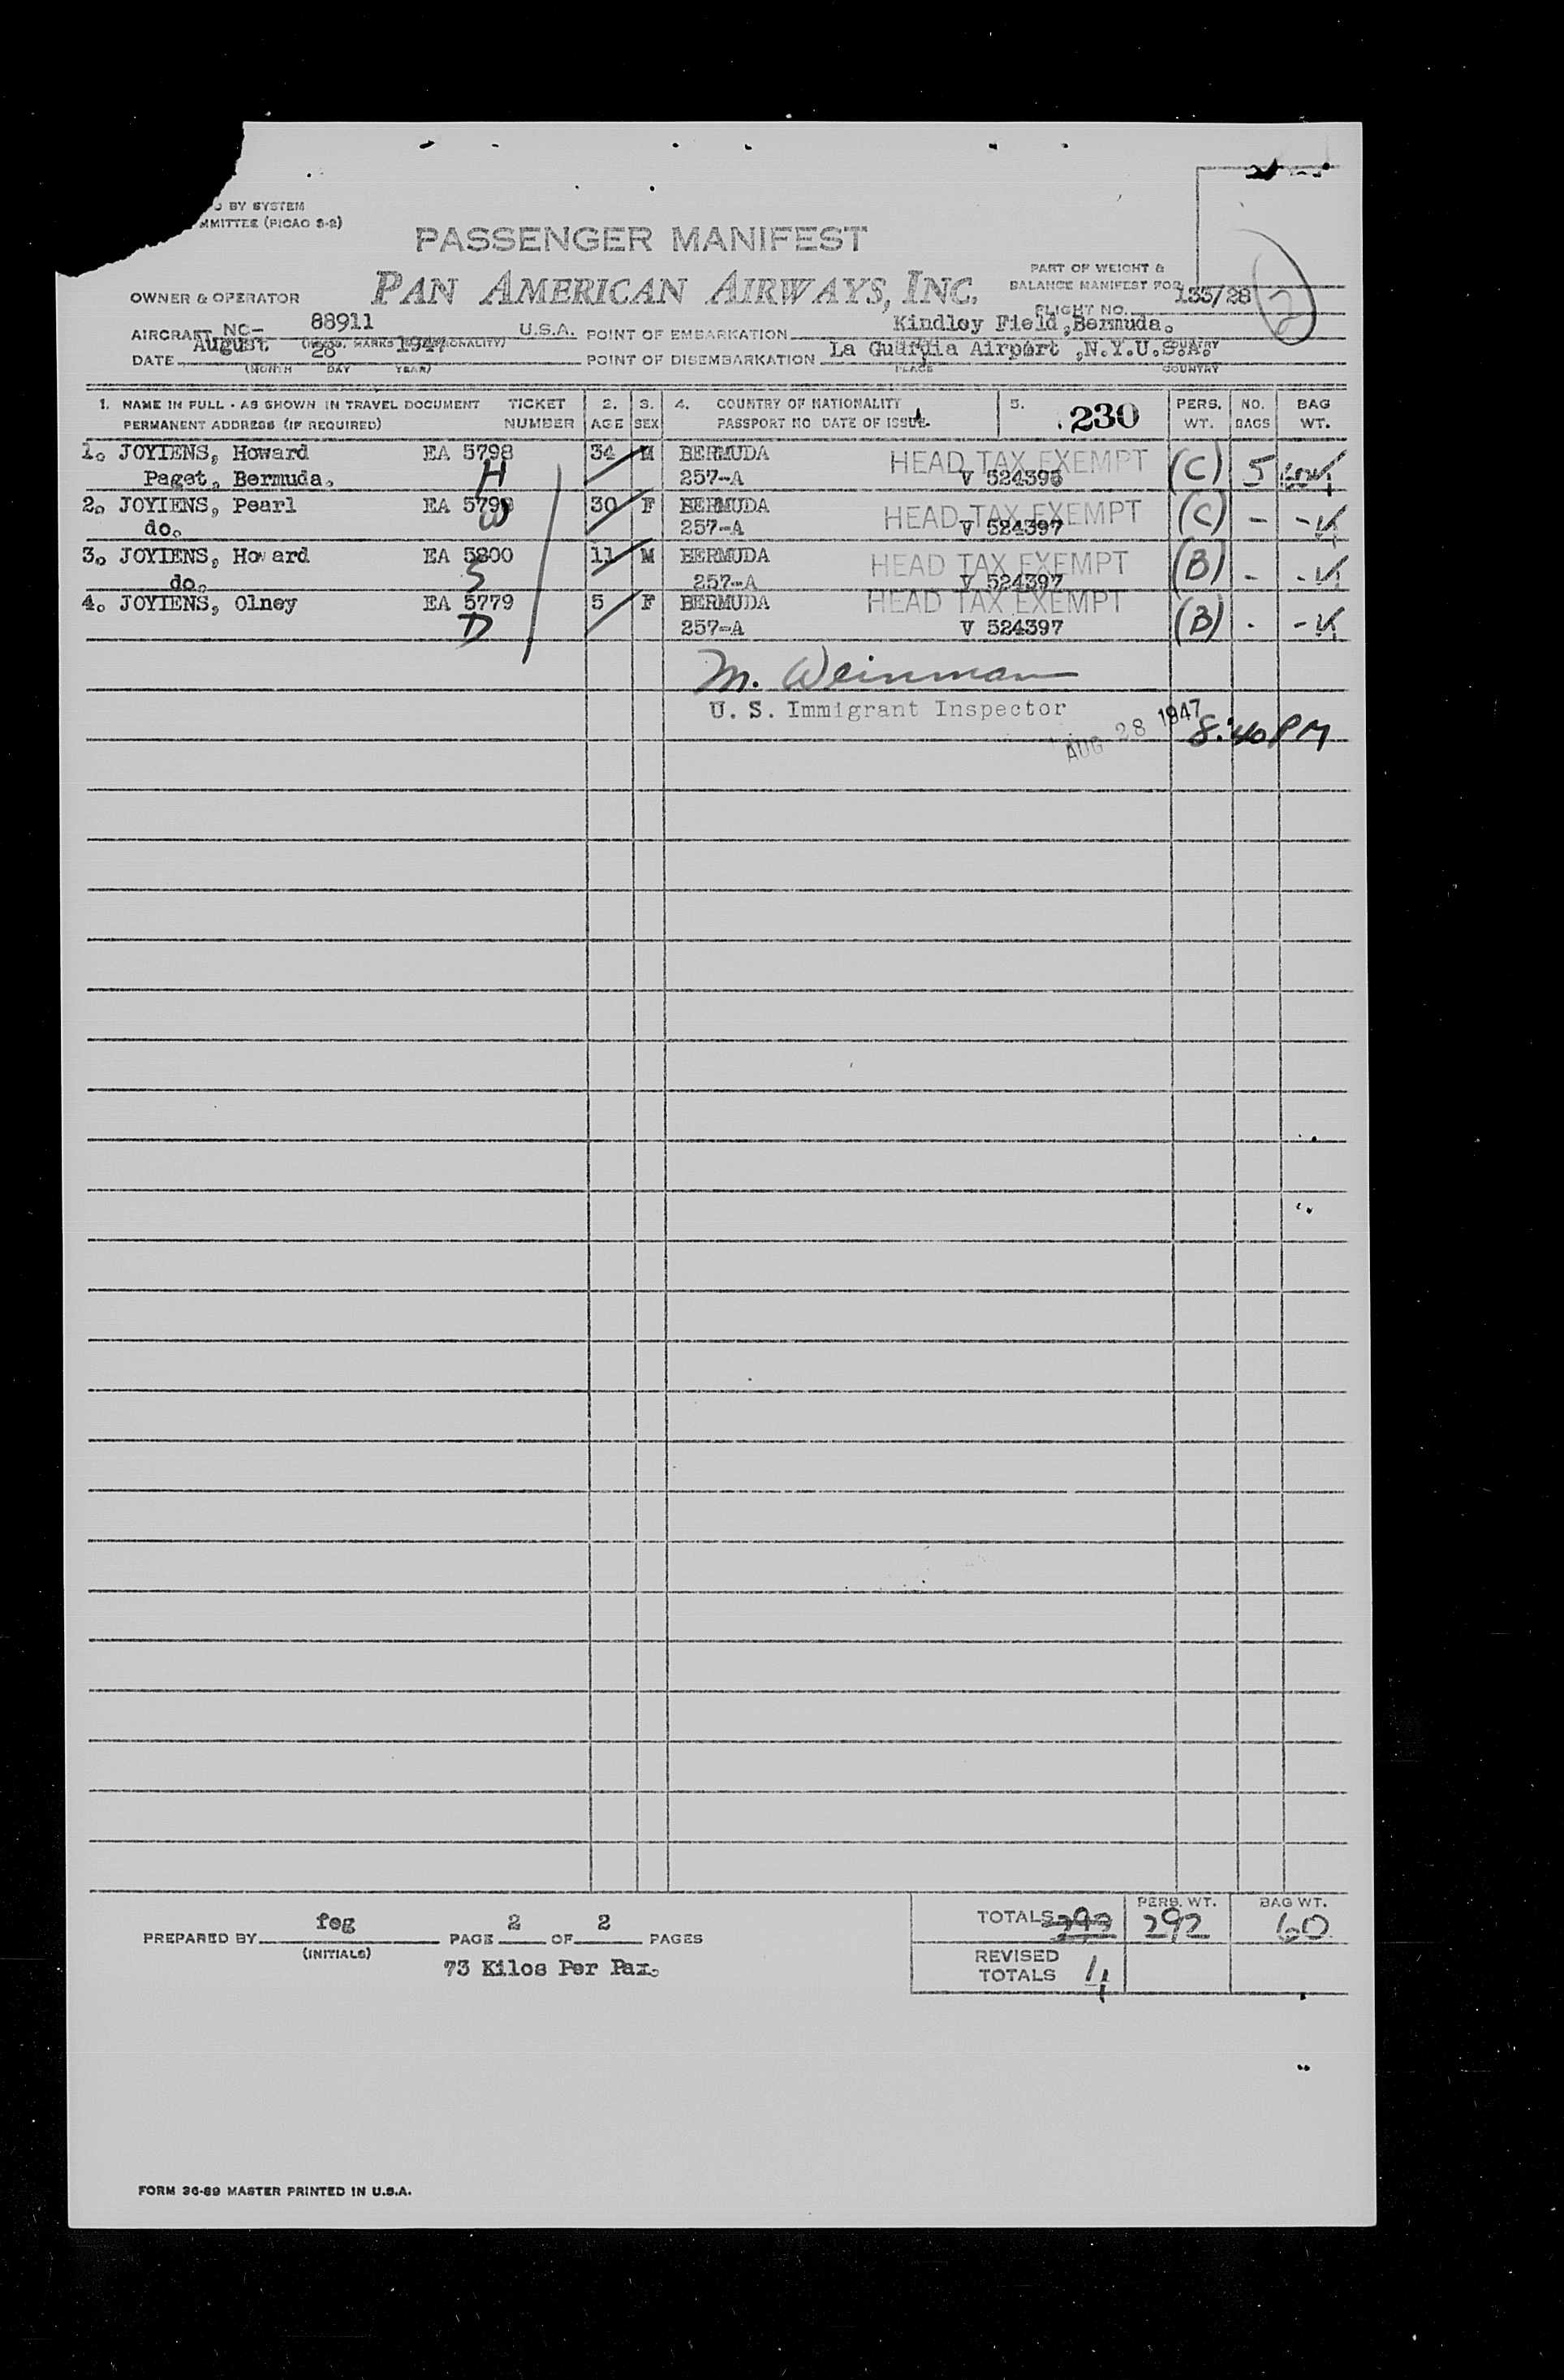 BY SYSTEM
MMITTEE (PICAO S-2)
PASSENGER MANIFEST
PAN AMERICAN AIRWAYS, INC.
PART OF WEIGHT &
BALANCE MANIFEST FOR
FLIGHT NO. 133/28
2
OWNER & OPERATOR
AIRCRAFT NC- 88911 U.S.A. POINT OF EMBARKATION Kindley Field, Bermuda.
DATE August 28 1947 POINT OF DISEMBARKATION La Guardia Airport, N.Y.U.S.A.
(MONTH DAY YEAR) PLACE COUNTRY
1. NAME IN FULL - AS SHOWN IN TRAVEL DOCUMENT TICKET 2. 3. 4. COUNTRY OF NATIONALITY 5. 230 PERS. NO. BAG
PERMANENT ADDRESS (IF REQUIRED) NUMBER AGE SEX PASSPORT NO DATE OF ISSUE. WT. BAGS WT.
1. JOYIENS, Howard EA 5798 34 M BERMUDA HEAD TAX EXEMPT (C) 5
Paget, Bermuda. H 257-A V 524396
2. JOYIENS, Pearl EA 5799 30 F BERMUDA HEAD TAX EXEMPT (C) - -
do. W 257-A V 524397
3. JOYIENS, Howard EA 5800 11 M BERMUDA HEAD TAX EXEMPT (B) - -
do. S 257-A V 524397
4. JOYIENS, Olney EA 5779 5 F BERMUDA HEAD TAX EXEMPT (B) - -
D 257-A V 524397
M. Weinman
U. S. Immigrant Inspector
AUG 28 1947 8:40 PM
TOTALS 292 PERS. WT. 292 BAG WT. 60
PREPARED BY feg PAGE 2 OF 2 PAGES
(INITIALS)
REVISED
TOTALS 4
73 Kilos Per Pax.
FORM 36-89 MASTER PRINTED IN U.S.A.